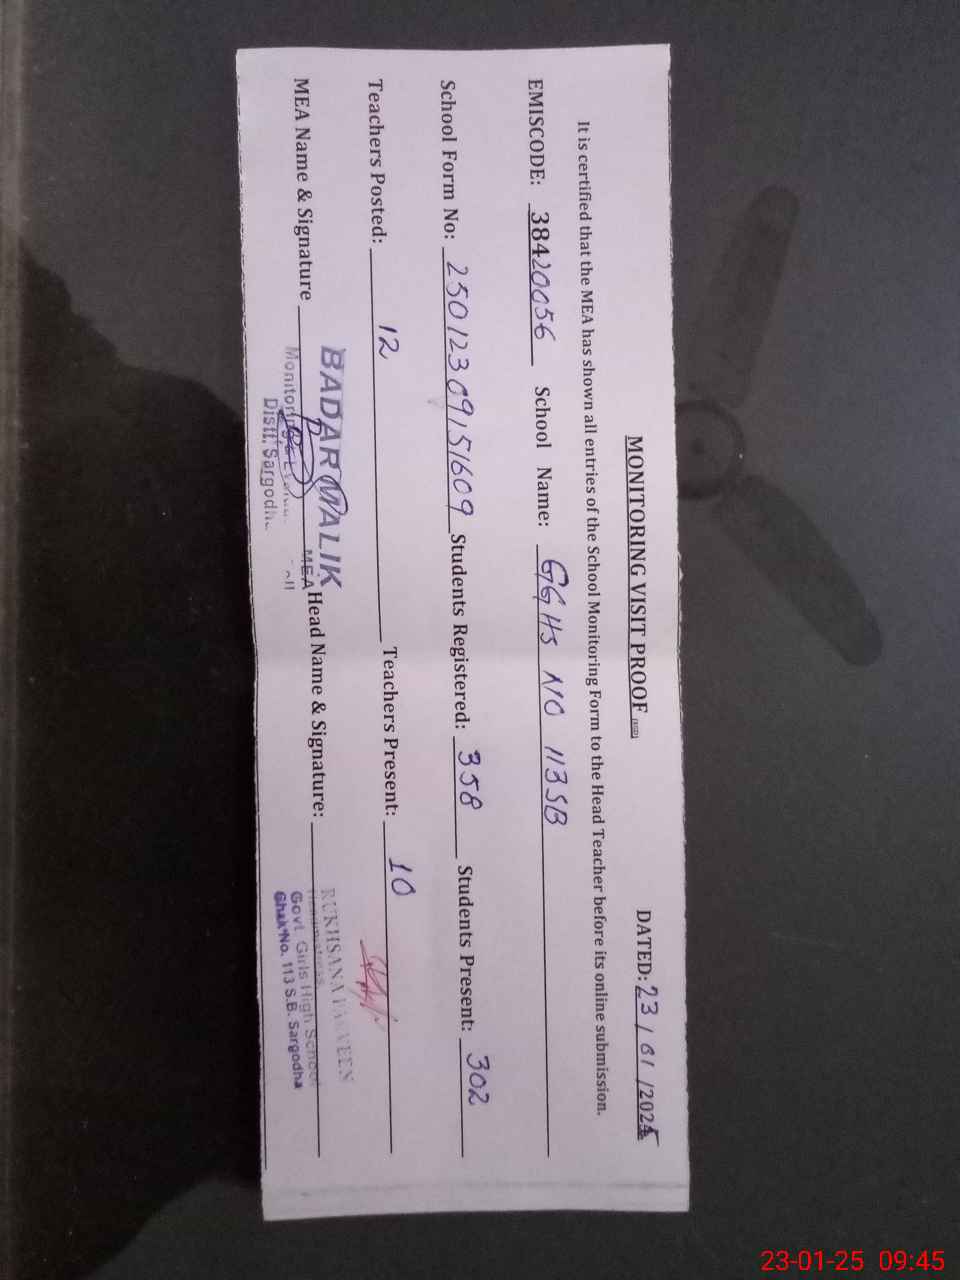 MONITORING VISIT PROOF
DATED: 23/01/2025
It is certified that the MEA has shown all entries of the School Monitoring Form to the Head Teacher before its online submission.
EMISCODE: 38420056 School Name: GGHS NO 113SB
School Form No: 25012309151609 Students Registered: 358 Students Present: 302
Teachers Posted: 12 Teachers Present: 10
MEA Name & Signature Head Name & Signature:
BADAR MALIK
MEA
Distt. Sargodha
RUKHSANA PARVEEN
Headmistress
Govt. Girls High School
Chak No. 113 S.B. Sargodha
23-01-25 09:45